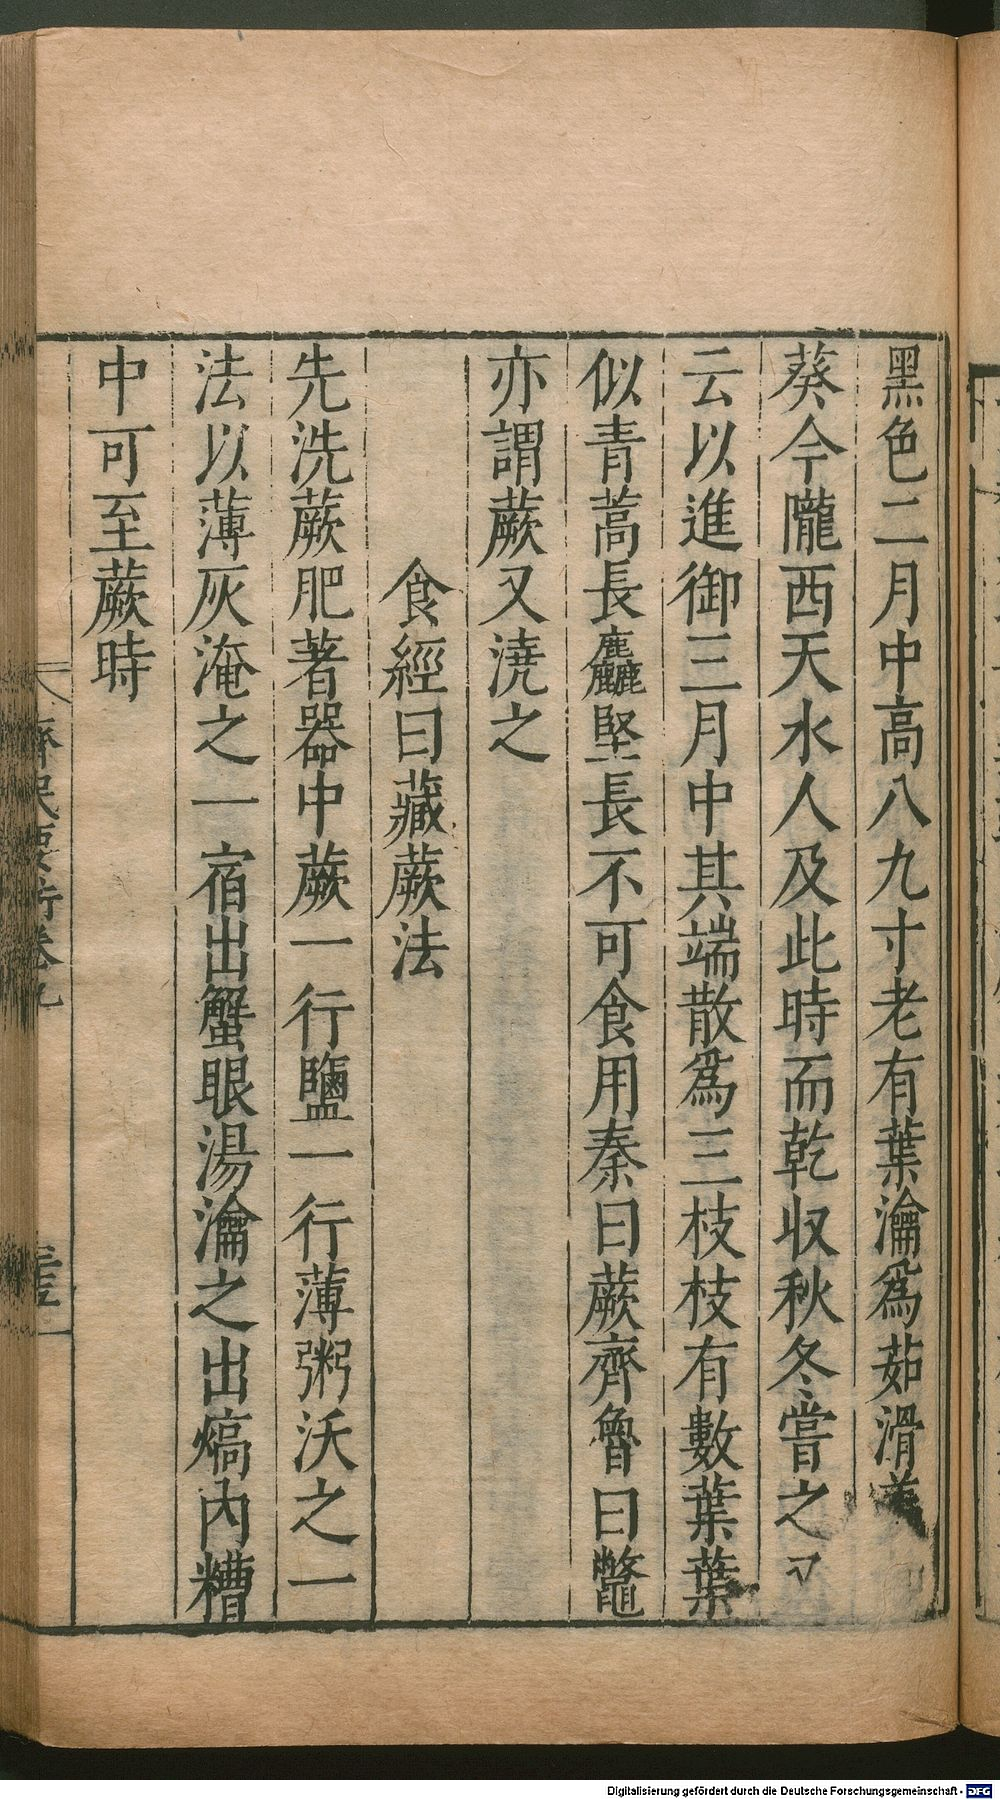 黑色二月中高八九寸老有葉瀹爲茹滑美
葵今隴西天水人及此時而乾收秋冬嘗之
云以進御三月中其端散爲三枝枝有數葉葉
似青蒿長麤堅長不可食用秦曰蕨齊魯曰虌
亦謂蕨又澆之
食經曰藏蕨法
先洗蕨肥著器中蕨一行鹽一行薄粥沃之一
法以薄灰淹之一宿出蟹眼湯瀹之出熇內糟
中可至蕨時
齊民要術卷九
Digitalisierung gefördert durch die Deutsche Forschungsgemeinschaft - DFG